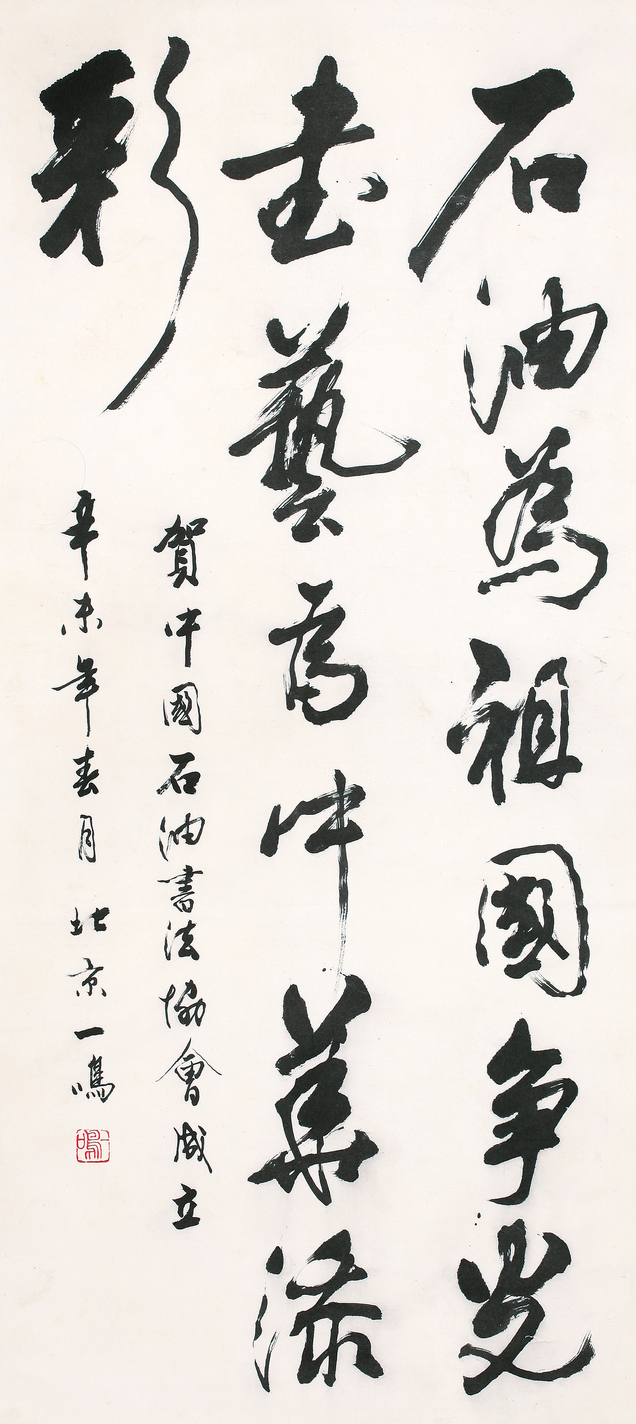 石油為祖國争光
书藝为中華添
彩
賀中國石油書法協會成立
辛未年春月北京一鳴
一鳴